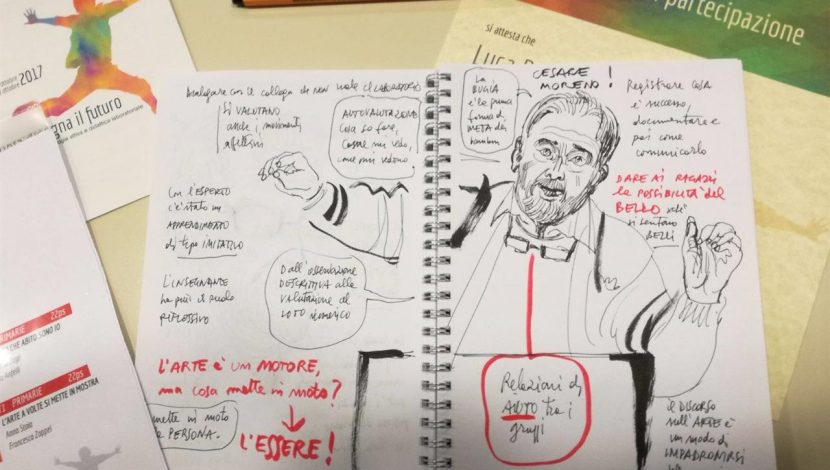 ottobre 2017
gna il futuro
PRIMARIE 22ps
CHE ABITO SONO IO
Angelli
PRIMARIE 22ps
L'ARTE A VOLTE SI METTE IN MOSTRA
Anna Stoia
Francesca Zoppei
partecipazione
si attesta che
Luca
Dialogare con il collega che non vuole il LABORATORIO
Si VALUTANO
anche i movimenti
affettivi
AUTOVALUTAZIONE
Cosa so fare,
come mi vedo,
come mi vedono
Con l'ESPERTO
c'è stato un
APPRENDIMENTO
di tipo IMITATIVO
L'INSEGNANTE
ha più il ruolo
RIFLESSIVO
Dall'osservazione
DESCRITTIVA alla
VALUTAZIONE al
VOTO numerico
L'ARTE è UN MOTORE,
ma cosa mette in moto?
mette in moto
la PERSONA.
L'ESSERE!
CESARE
MORENO!
La
BUGIA
è la prima
forma di
META dei
bambini
Registrare COSA
è successo,
documentare e
poi come
comunicarlo
DARE AI RAGAZZI
la POSSIBILITÀ del
BELLO
si sentano
BELLI
Relazioni di
AIUTO tra i
gruppi
e DISCORSO
sull'ARTE è
un modo di
IMPADRONIRSI